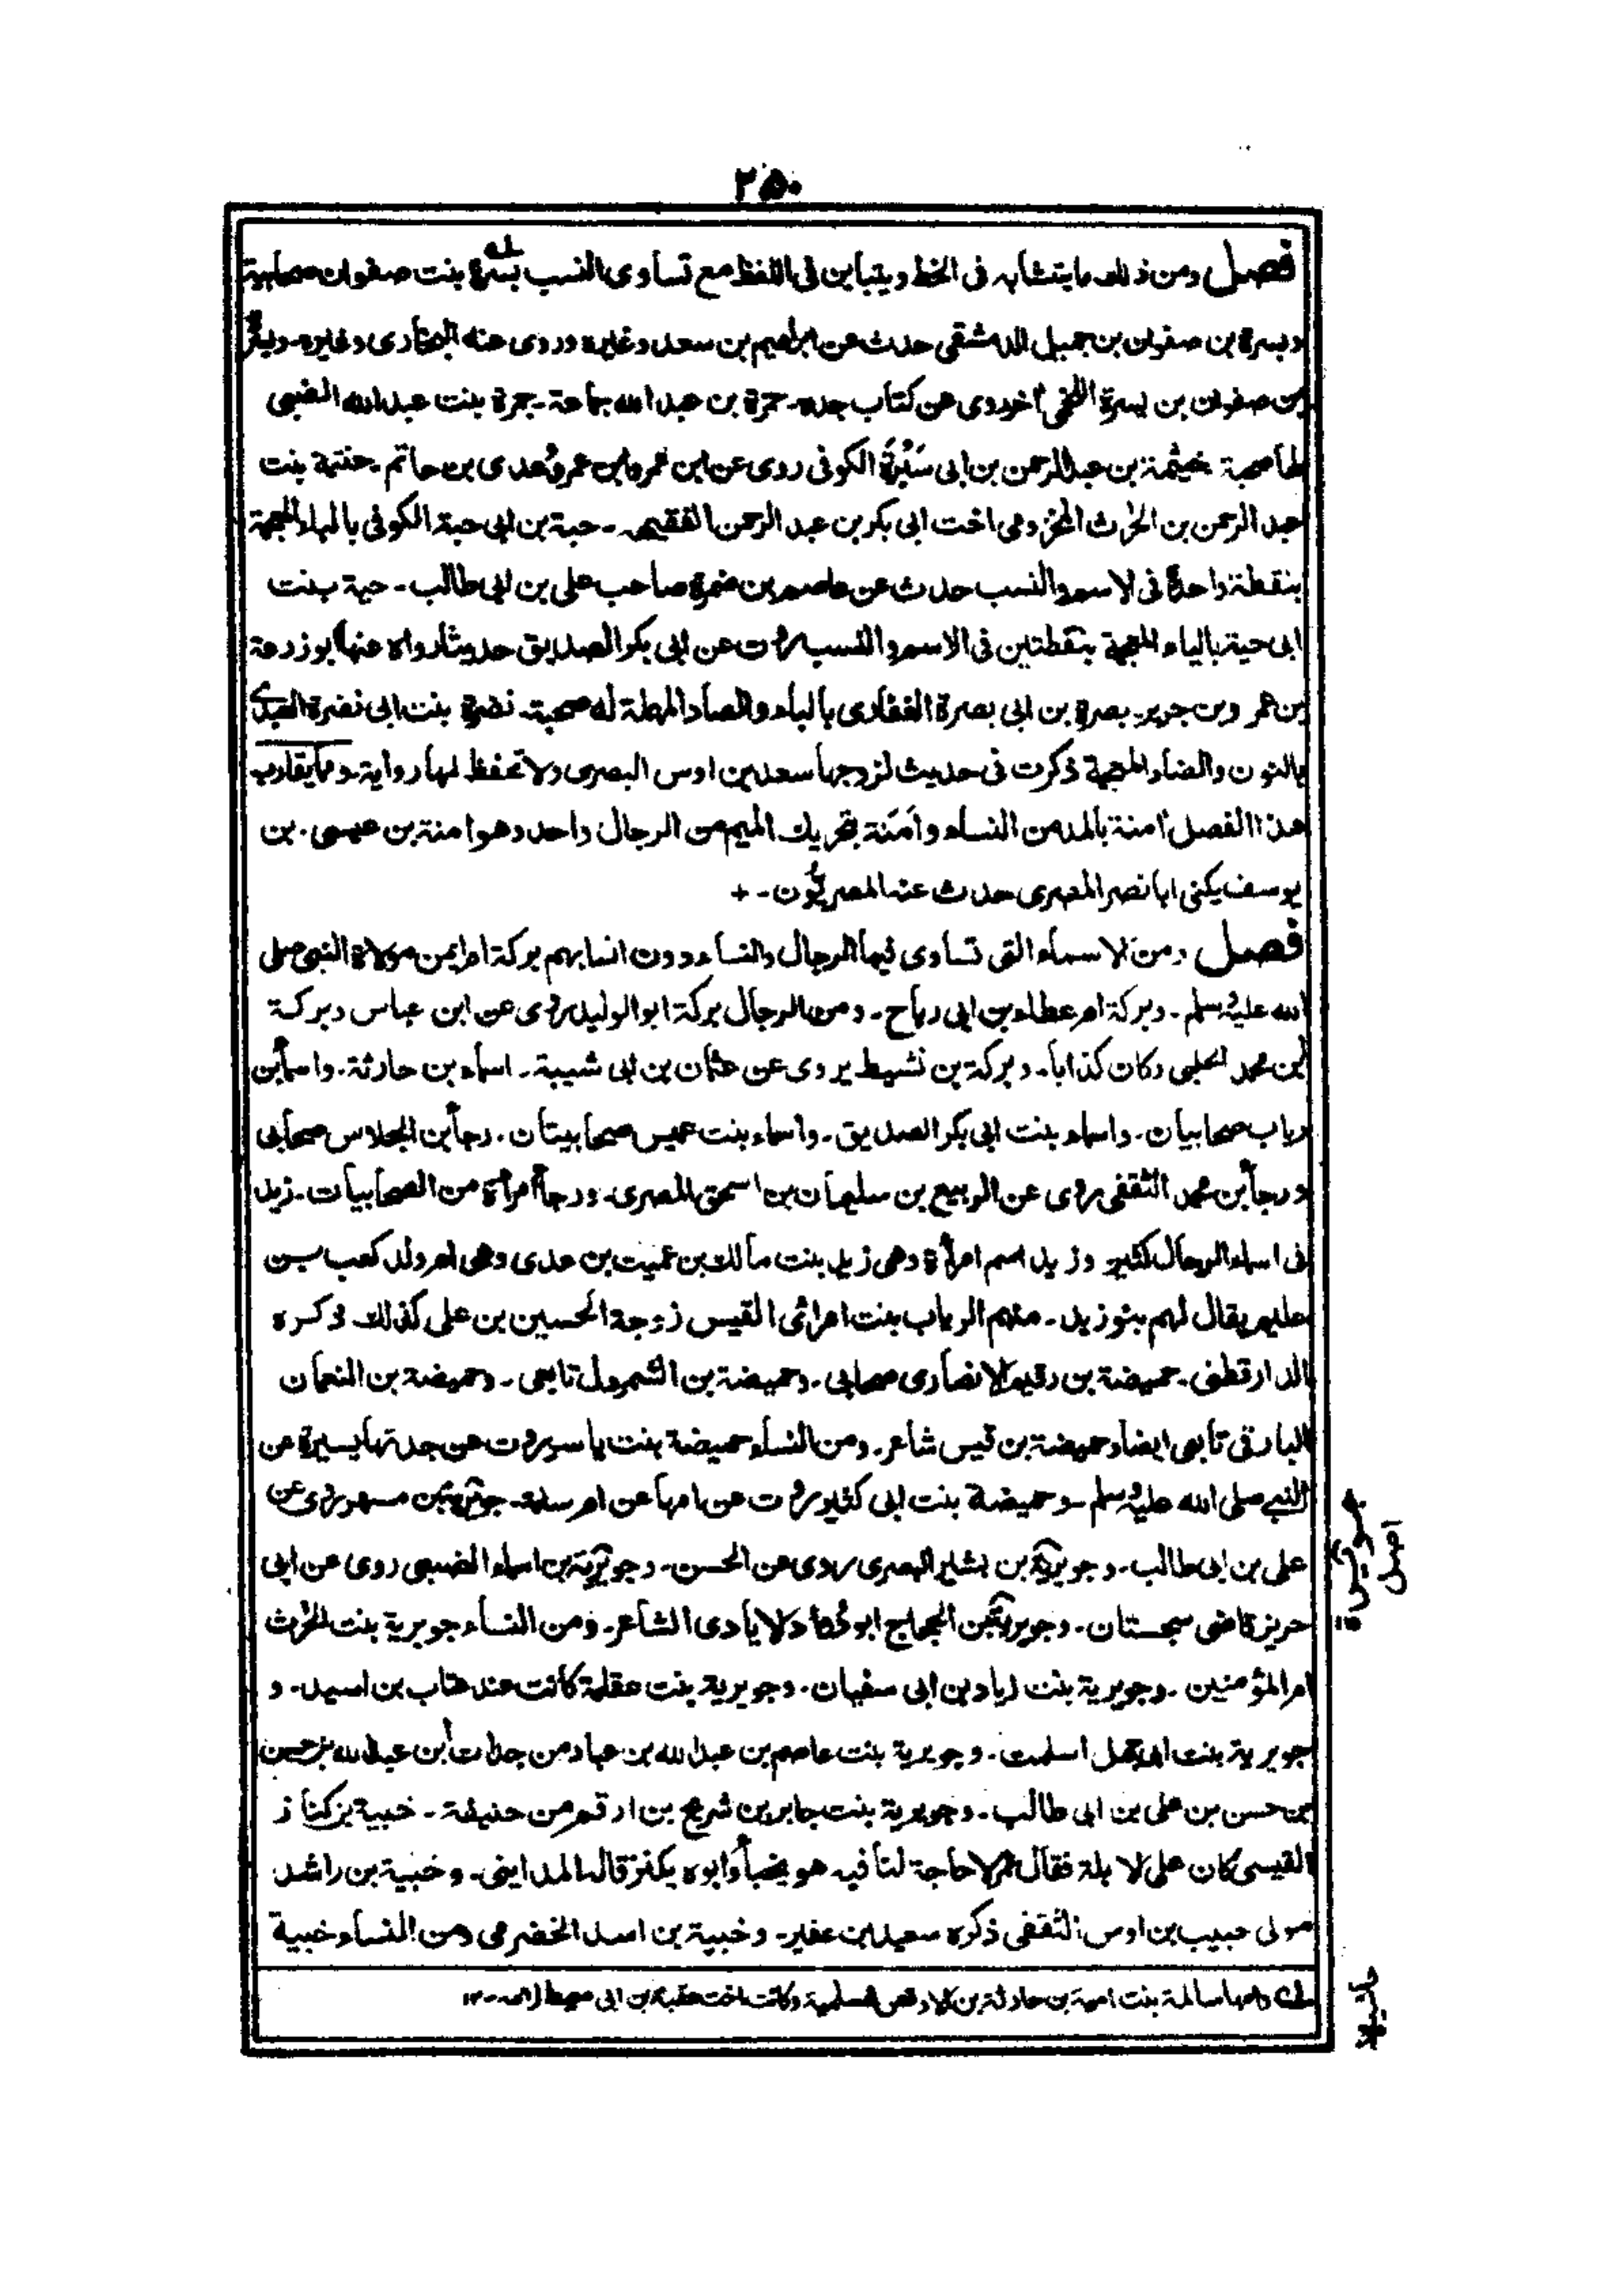 ٢٥٠
فصل ومن ذلك ما يتشابه فى الخط ويتباين فى اللفظ مع تساوى النسب بسرة بنت صفوان صحابية
وبسرة بن صفوان بن جميل الدمشقى حدث عن ابراهيم بن سعد وغيره وروى عنه البخارى وغيره۔
بن صفوان بن يسرة اللخمى آخر روى عن كتاب جده۔ حمزة بن عبد الله جماعة۔ جمرة بنت عبد الله الضبى
لها صحبة خيثمة بن عبد الرحمن بن ابى سَبْرَة الكوفى روى عن ابن عمر وابن عمرو وعدى بن حاتم۔ حنتمة بنت
عبد الرحمن بن الحٰرث المخزومى اخت ابى بكر بن عبد الرحمن الفقيه۔ حبة بن ابى حبة الكوفى بالباء المعجمة
بنقطة واحدة فى الاسم والنسب حدث عن عاصم بن ضمرة صاحب على بن ابى طالب۔ حية بنت
ابى حية بالياء المعجمة بنقطتين فى الاسم والنسب روت عن ابى بكر الصديق حديثا رواه عنها ابو زرعة
بن عمر وبن جرير۔ بصرة بن ابى بصرة الغفارى بالباء والصاد المهملة له صحبة۔ نضرة بنت ابى نضرة العبدى
بالنون والضاد المعجمة ذكرت فى حديث لزوجها سعد بن اوس البصرى ولا تحفظ لها رواية۔ ومما يقارب
هذا الفصل آمنة بالمد من النساء واَمَنَة بتحريك الميم من الرجال واحد وهو امنة بن عيسى۔ بن
يوسف يكنى ابا نصر المصرى حدث عنه المصريون۔ +
فصل ومن الاسماء التى تساوى فيها الرجال والنساء دون انسابهم بركة ام ايمن مولاة النبى صلى
الله عليه وسلم۔ وبركة ام عطاء بن ابى رباح۔ ومن الرجال بركة ابو الوليد روى عن ابن عباس وبركة
ابن محمد الحلبى وكان كذابا۔ وبركة بن نشيط يروى عن عثمان بن ابى شيبة۔ اسماء بن حارثة۔ واسماء بن
رباب صحابيان۔ واسماء بنت ابى بكر الصديق۔ واسماء بنت عميس صحابيتان۔ رجاء بن الجلاس صحابى
ورجاء بن محمد الثقفى روى عن الربيع بن سليمان بن اسحق المصرى۔ ورجاء امرأة من الصحابيات۔ زيد
فى اسماء الرجال كثير وزيد اسم امرأة وهى زيد بنت مالك بن عميت بن عدى وهى ام ولد كعب بن
عليم يقال لهم بنو زيد۔ منهم الرباب بنت امرائ القيس زوجة الحسين بن على كذلك ذكره
الدارقطنى۔ حميضة بن رقيم الانصارى صحابى۔ وحميضة بن الشمردل تابعى۔ وحميضة بن النعمان
البارقى تابعى ايضا وحميضة بن قيس شاعر۔ ومن النساء حميضة بنت ياسر روت عن جدتها يسيرة عن
النبى صلى الله عليه وسلم۔ وحميضة بنت ابى كثير روت عن امها عن ام سلمة۔ جويرية بن مسهر روى عن
على بن ابى طالب۔ وجويرية بن بشير البصرى روى عن الحسن۔ وجويرية بن اسماء الضبعى روى عن ابى
حريز قاضى سجستان۔ وجويرية بن الحجاج ابو دُؤاد الايادى الشاعر۔ ومن النساء جويرية بنت الحٰرث
ام المؤمنين۔ وجويرية بنت زياد بن ابى سفيان۔ وجويرية بنت عقلة كانت عند عتاب بن اسيد۔ و
جويرية بنت ابى جهل اسلمت۔ وجويرية بنت عاصم بن عبد الله بن عباد من جدات ابن عبد الله بن حسن
بن حسن بن على بن ابى طالب۔ وجويرية بنت جابر بن شريح بن ارقم من حنيفة۔ خبيئة بن كناز
القيسى كان على الابلة فقال عمر لا حاجة لنا فيه هو يخبأ وابوه يكنز قاله المداينى۔ وخبية بن راشد
مولى حبيب بن اوس الثقفى ذكره سعيد بن عفير۔ وخبية بن اسد الخضرمى ومن النساء خبية
وامها سالمة بنت امية بن حارثة بن الاوقص السلمية وكانت اخت عقبة بن ابى معيط لامه۔ ١٢
اصل